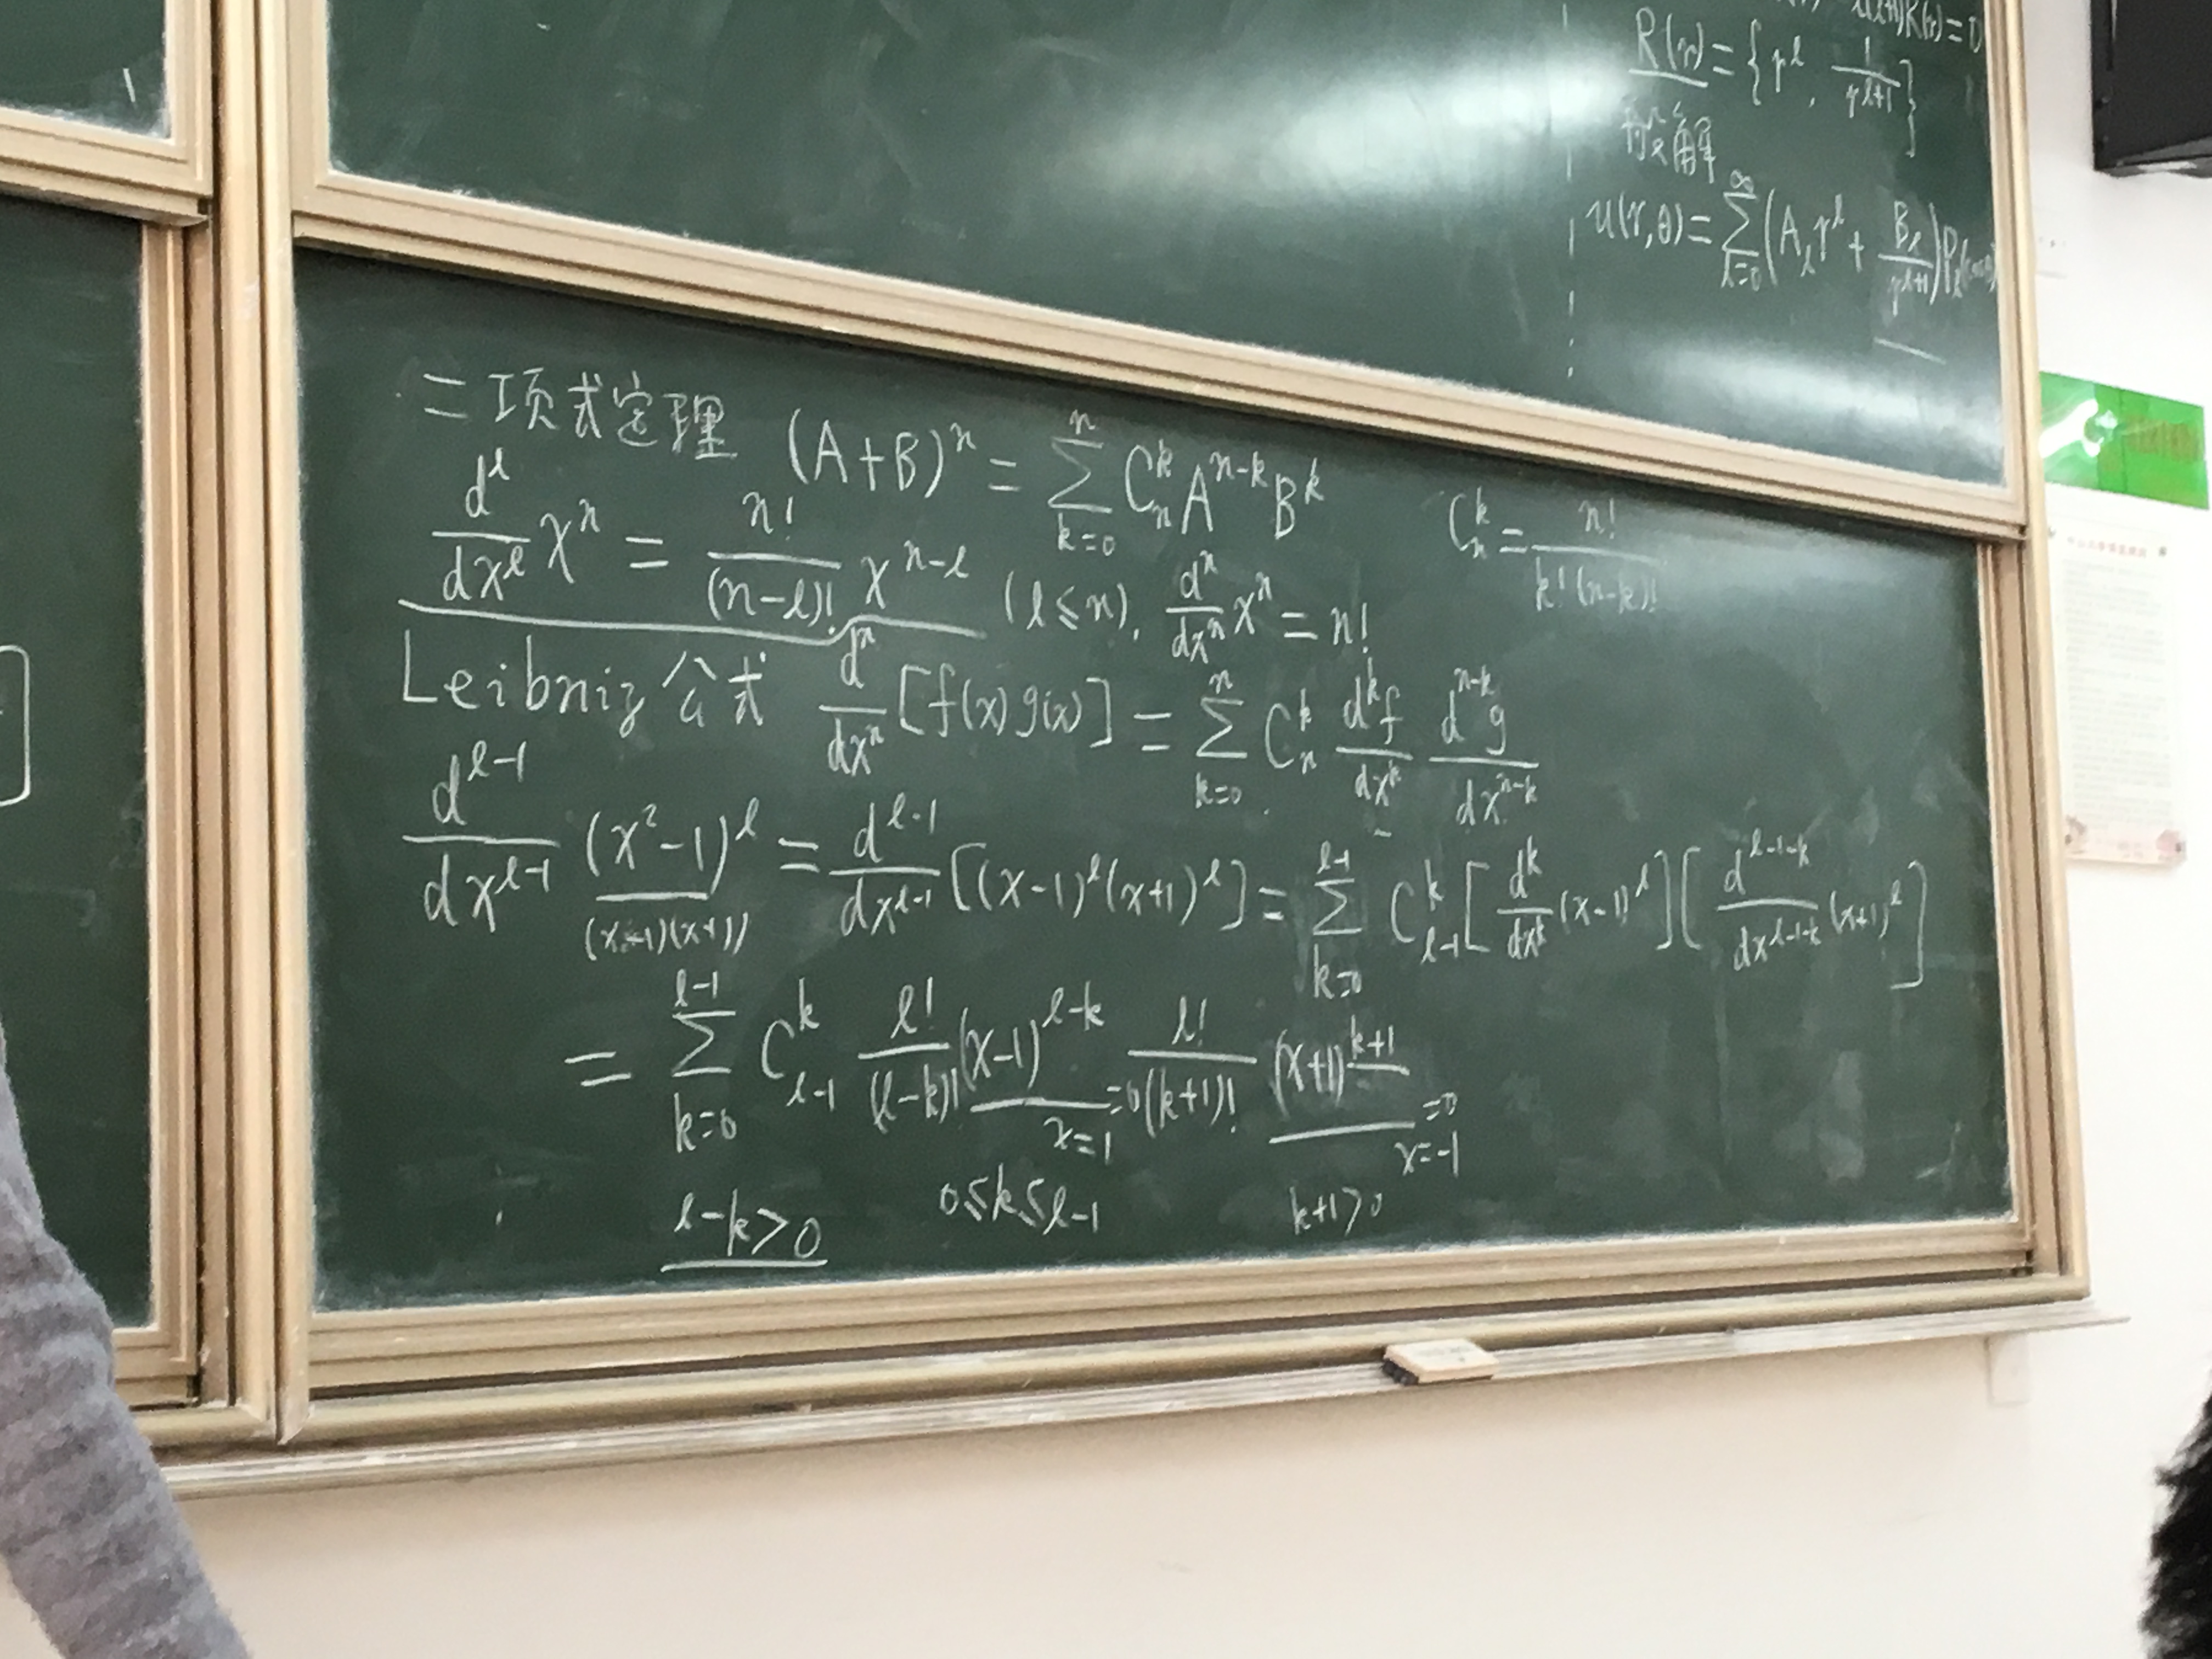 R(r) = { r^l, 1/r^{l+1} }
u(r,θ) = Σ_{l=0}^{∞} (A_l r^l + B_l/r^{l+1}) P_l(cosθ)
二项式定理 (A+B)^n = Σ_{k=0}^{n} C_n^k A^{n-k} B^k C_n^k = n!/(k!(n-k)!)
d^l/dx^l x^n = n!/(n-l)! x^{n-l} (l≤n), d^n/dx^n x^n = n!
Leibniz公式 d^n/dx^n [f(x)g(x)] = Σ_{k=0}^{n} C_n^k d^k f/dx^k d^{n-k} g/dx^{n-k}
d^{l-1}/dx^{l-1} (x²-1)^l = d^{l-1}/dx^{l-1} [(x-1)^l (x+1)^l] = Σ_{k=0}^{l-1} C_{l-1}^k [d^k/dx^k (x-1)^l] [d^{l-1-k}/dx^{l-1-k} (x+1)^l]
(x-1)(x+1)
= Σ_{k=0}^{l-1} C_{l-1}^k l!/(l-k)! (x-1)^{l-k} l!/(k+1)! (x+1)^{k+1}
x=1 =0 x=-1 =0
l-k>0 0≤k≤l-1 k+1>0